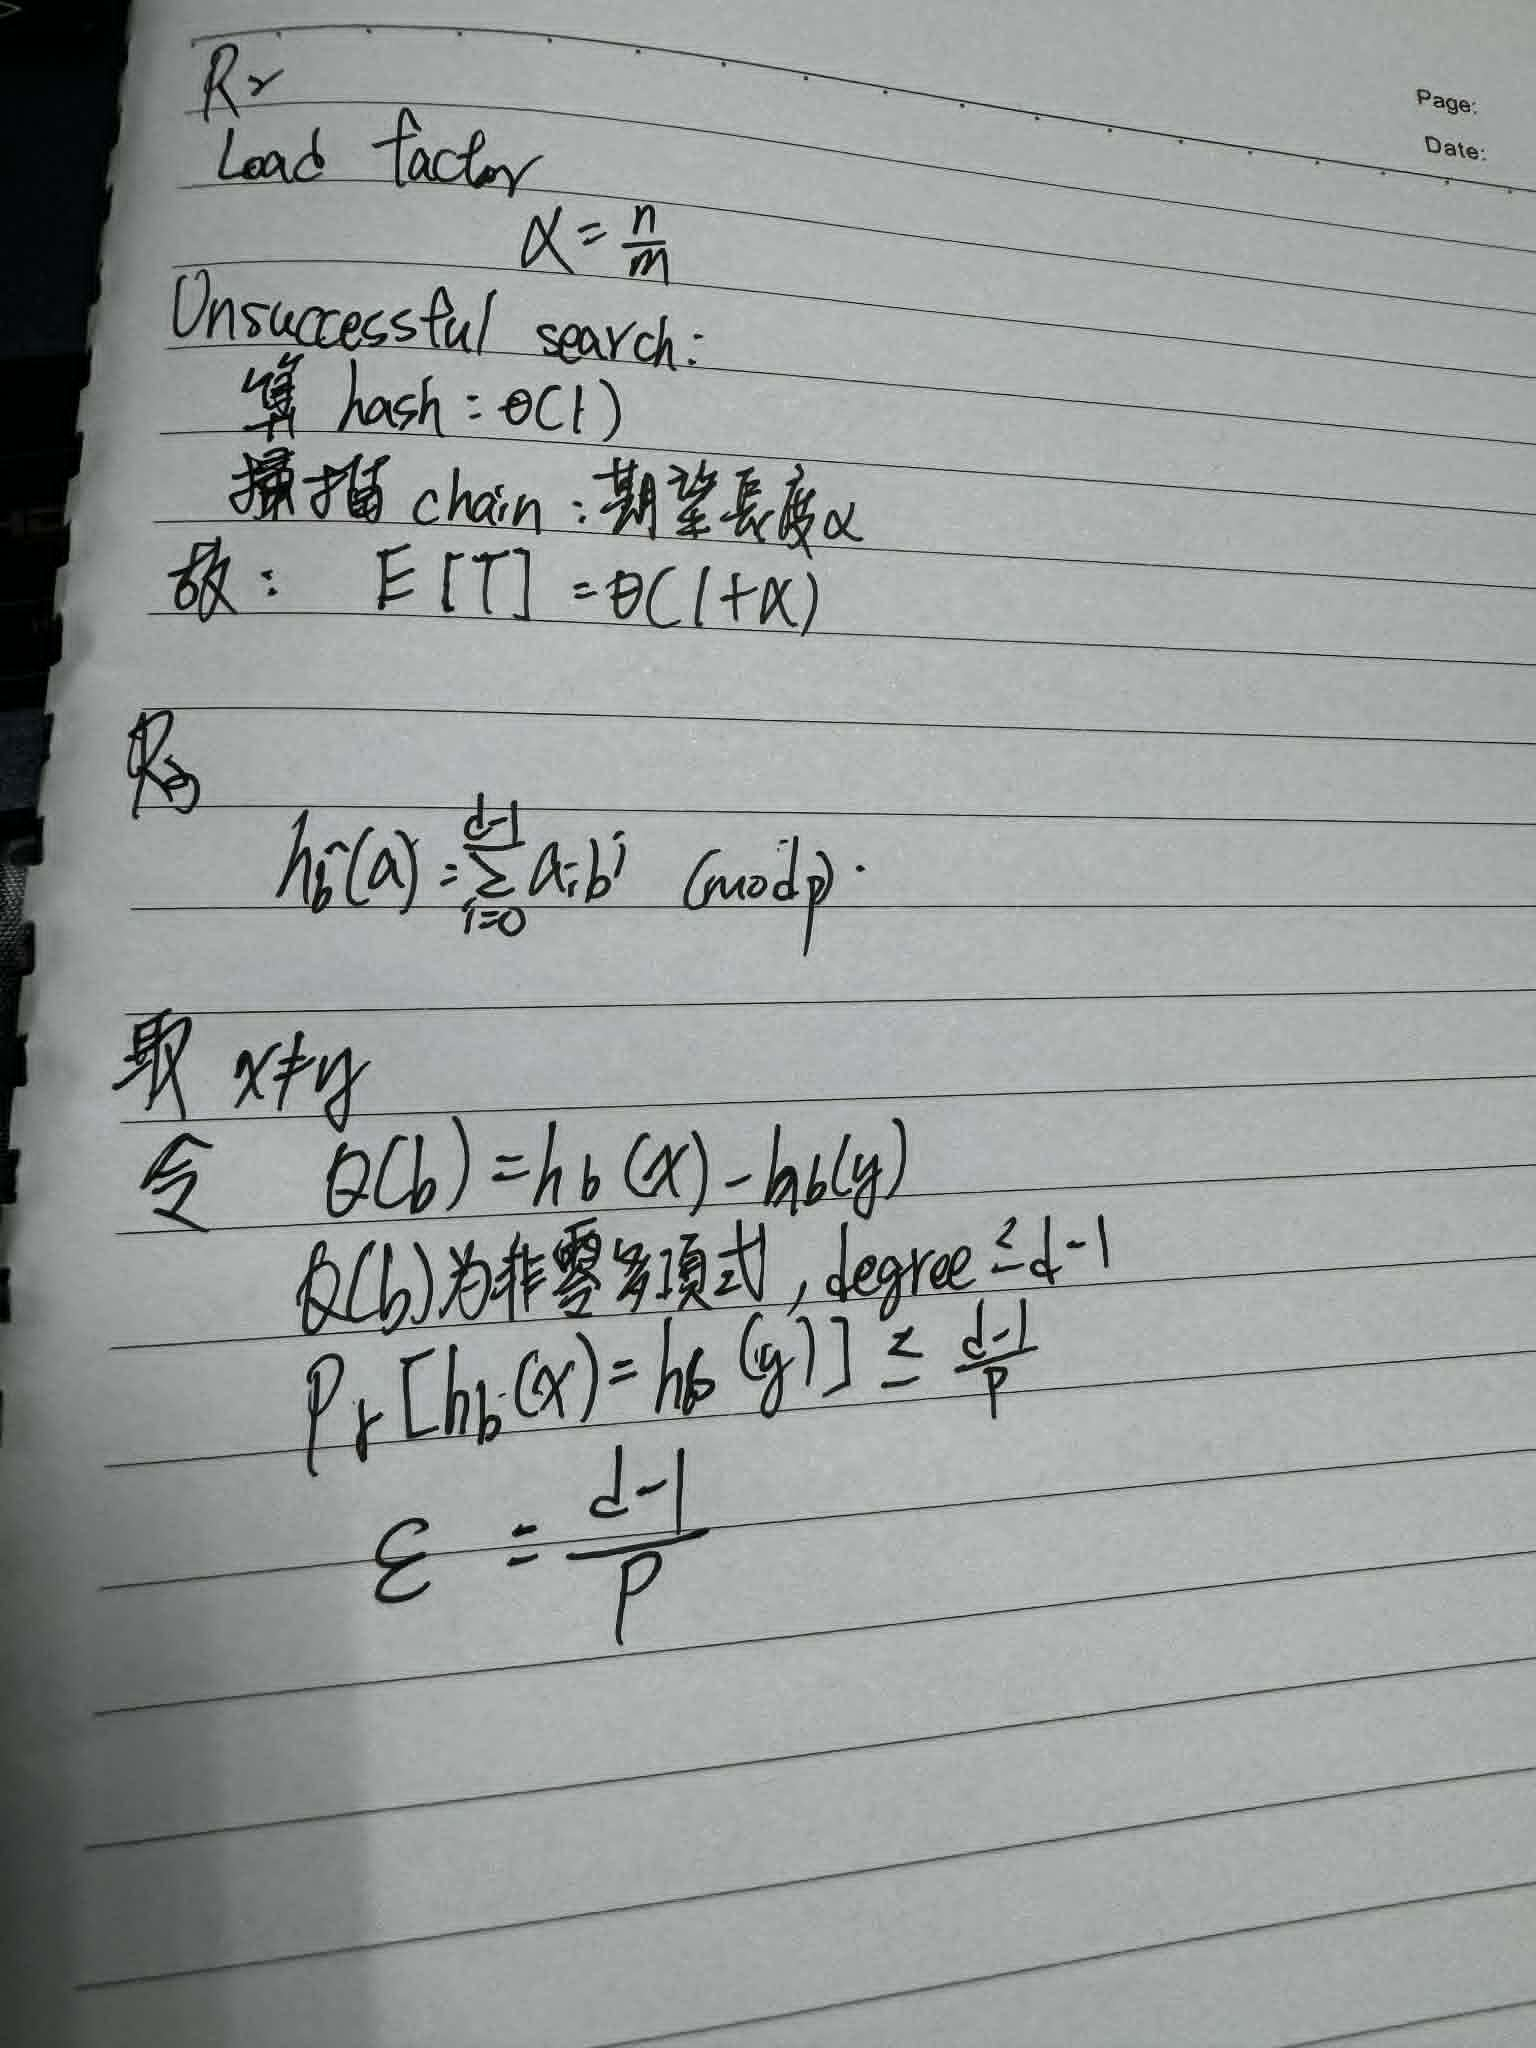 Page:
Date:
R2
Load factor
α = n/m
Unsuccessful search:
算 hash : θ(1)
掃描 chain : 期望長度α
故 : E[T] = θ(1+α)
R3
h_b(a) = Σ_{i=0}^{d-1} a_i b^i (mod p).
取 x≠y
令 Q(b) = h_b(x) - h_b(y)
Q(b)为非零多項式, degree ≤ d-1
Pr[h_b(x) = h_b(y)] ≤ (d-1)/p
ε = (d-1)/p